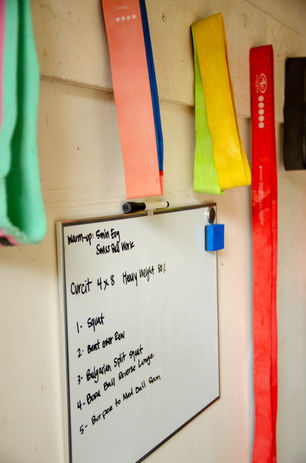 Warm-up: 5min Erg
Swiss Ball Work
Curcit 4x8 Heavy Weight 80%
1- Squat
2- Bent over Row
3- Bulgarian Split Squat
4- Bosu Ball Reverse Lunge
5- Burpee to Med Ball